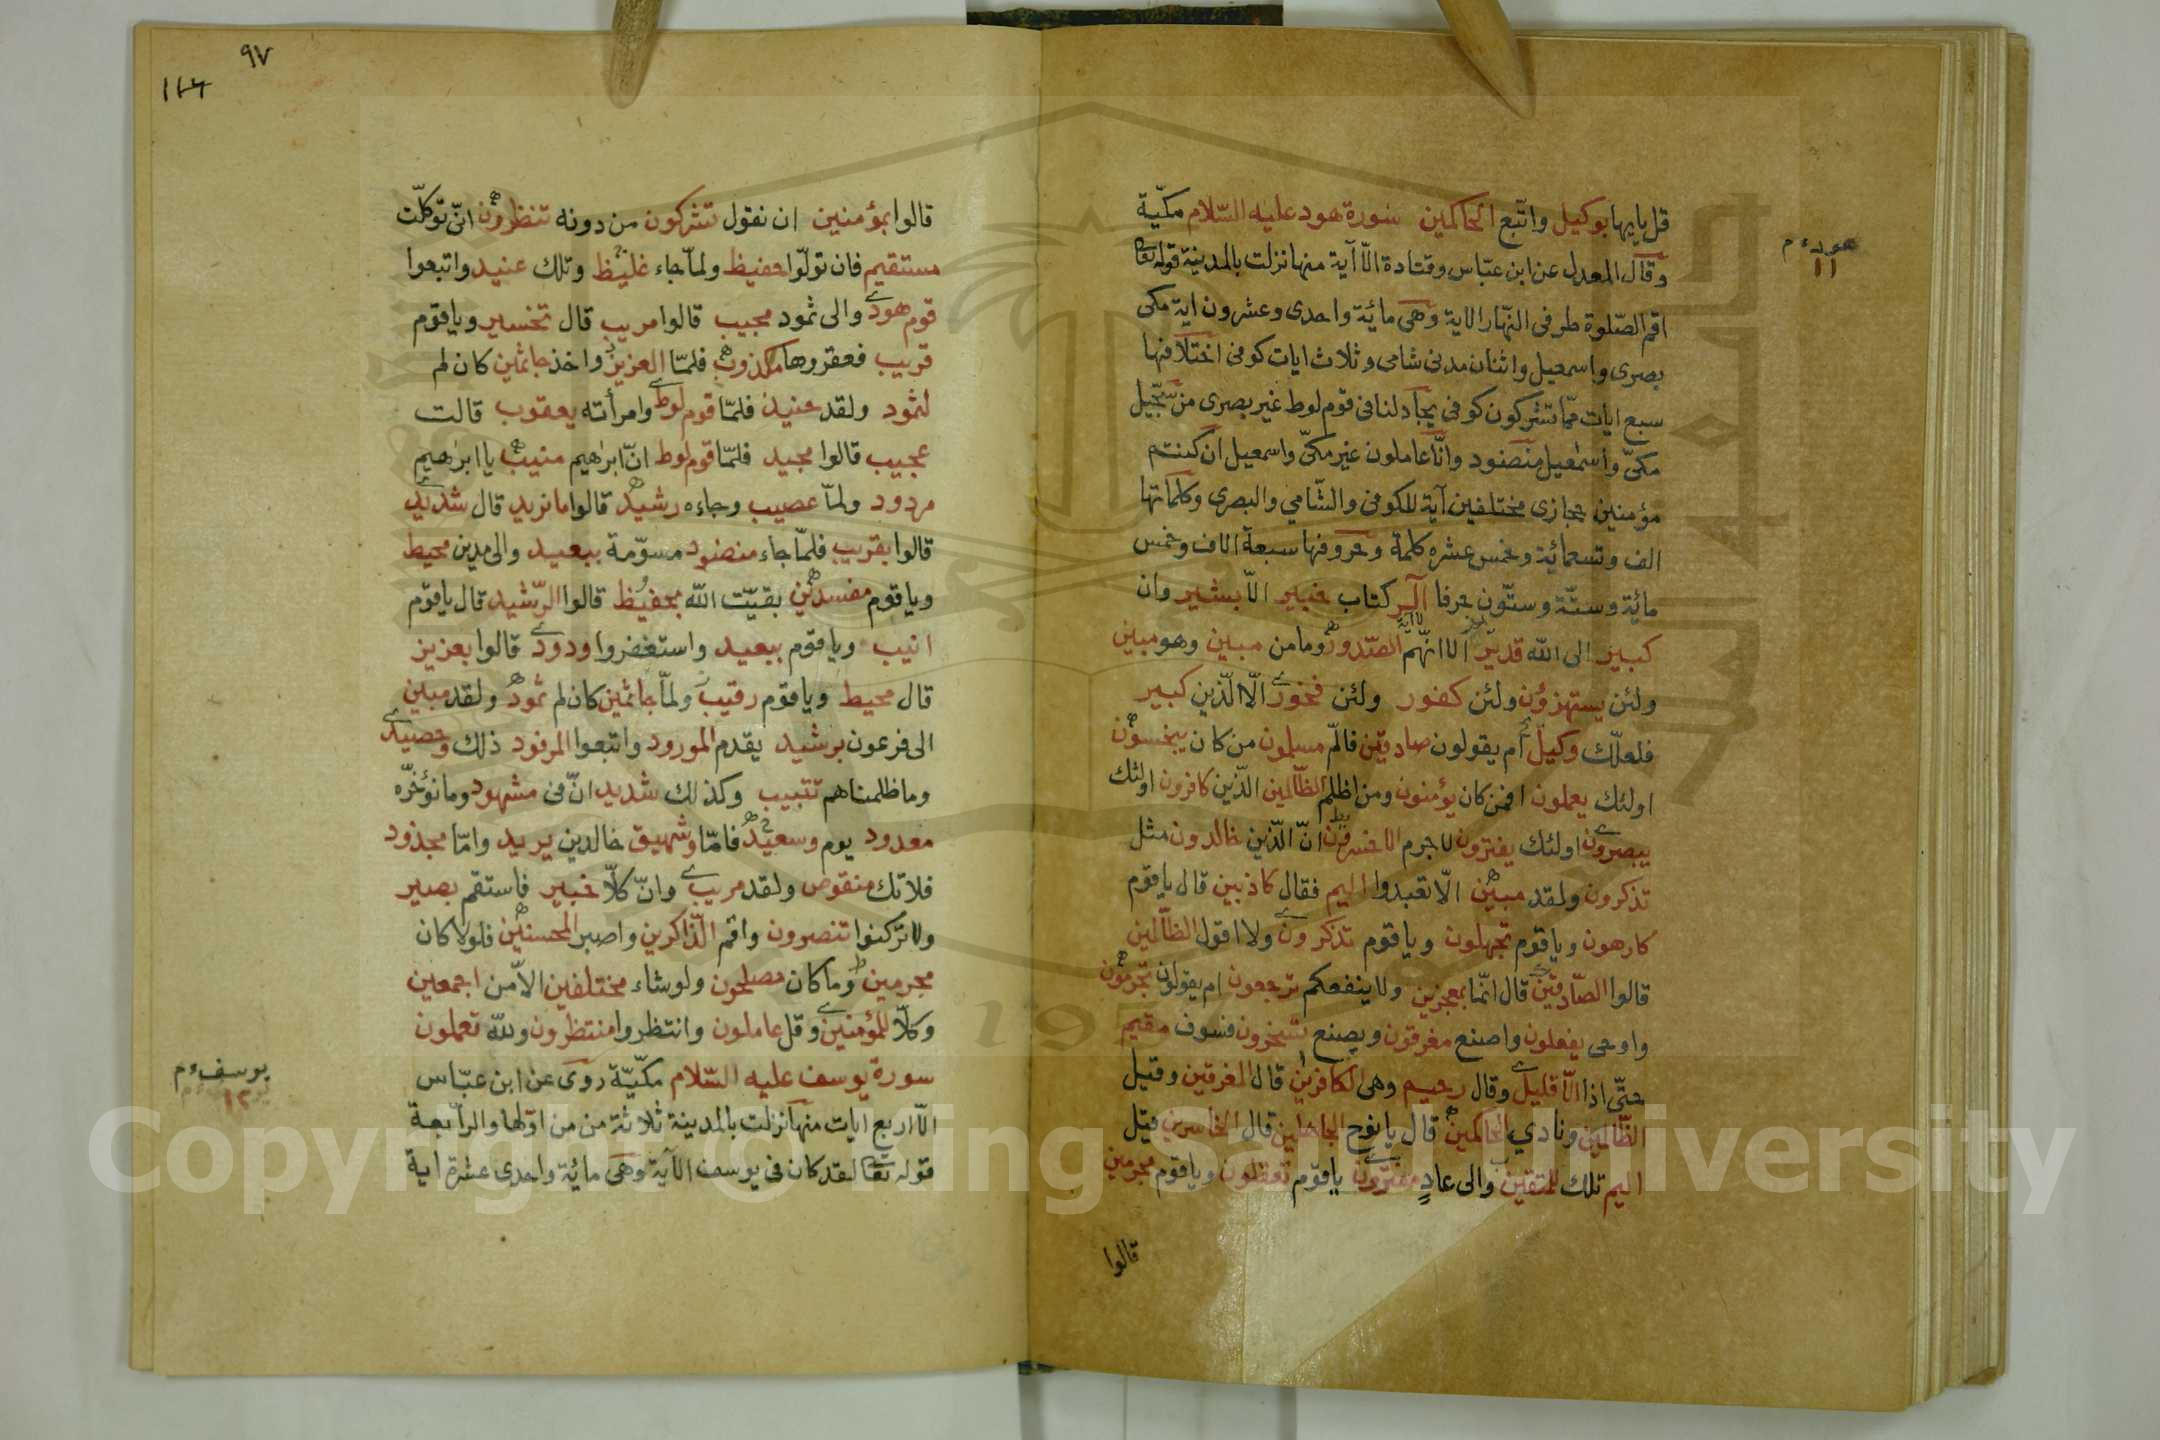 قل يايها بوكيل واتبع الحاكمين سورة هود عليه السّلام مكيّة
وقال المعدل عن ابن عبّاس وقتادة الّا آية منها نزلت بالمدينة قوله تعا
اقم الصّلوة طرفى النّهار الاية وهى مائة واحدى وعشرون اية مكى
بصرى واسمعيل واثنان مدنى شامى وثلاث ايات كوفى اختلافها
سبع ايات ممّا تشركون كوفى يجادلنا فى قوم لوط غير بصرى من سجّيل
مكىّ واسمعيل منضود وانّا عاملون غير مكىّ واسمعيل ان كنتم
مؤمنين حجازى مختلفين آية للكوفى والشّامي والبصرى وكلماتها
الف وتسعمائة وخمس عشره كلمة وحروفها سبعة الاف وخمس
مائة وستّة وستّون حرفا الر كتاب خبير الّا بشير وان
كبير الى الله قدير الا انّهم الصّدور وما من مبين وهو مبين
ولئن يستهزؤن ولئن كفور ولئن فخور الّا الّذين كبير
فلعلّك وكيل أم يقولون صادقين فالّم مسلمون من كان يبخسون
اولئك يعملون افمن كان يؤمنون ومن اظلم الظّالمين الّذين كافرون اولئك
يبصرون اولئك يفترون لا جرم الاخسرون انّ الّذين خالدون مثل
تذكرون ولقد مبين الّا تعبدوا اليم فقال كاذبين قال ياقوم
كارهون وياقوم تجهلون وياقوم تذكرون ولا اقول الظّالمين
قالوا الصّادقين قال انّما بمعجزين ولا ينفعكم ترجعون ام يقولون تجرمون
واوحى يفعلون واصنع مغرقون ويصنع تسخرون فسوف مقيم
حتّى اذا الّا قليل وقال رحيم وهى الكافرين قال المغرقين وقيل
الظّالمين ونادي الحاكمين قال يانوح الجاهلين قال الخاسرين قيل
اليم تلك للمتقين والى عاد مفترون ياقوم تعقلون وياقوم مجرمين
قالوا
هود ١١
٩٧
قالوا بمؤمنين ان نقول تشركون من دونه تنظرون انّى توكلّت
مستقيم فان تولّوا حفيظ ولمّا جاء غليظ وتلك عنيد واتبعوا
قوم هود والى ثمود مجيب قالوا مريب قال تخسير وياقوم
قريب فعقروها مكذوب فلمّا العزيز واخذ جاثمين كان لم
لثمود ولقد حنيذ فلمّا قوم لوط وامرأته يعقوب قالت
عجيب قالوا مجيد فلمّا قوم لوط انّ ابرٰهيم منيب يا ابرٰهيم
مردود ولمّا عصيب وجاءه رشيد قالوا ما نريد قال شديد
قالوا بقريب فلمّا جاء منضود مسوّمة ببعيد والى مدين محيط
وياقوم مفسدين بقيّت الله بحفيظ قالوا الرّشيد قال ياقوم
انيب وياقوم ببعيد واستغفروا ودود قالوا بعزيز
قال محيط وياقوم رقيب ولمّا جاثمين كان لم ثمود ولقد مبين
الى فرعون برشيد يقدم المورود واتبعوا المرفود ذلك وحصيد
وما ظلمناهم تتبيب وكذلك شديد انّ فى مشهود وما نؤخّره
معدود يوم وسعيد فامّا وشهيق خالدين يريد وامّا مجذود
فلا تك منقوص ولقد مريب وانّ كلّا خبير فاستقم بصير
ولا تركنوا تنصرون واقم الذّاكرين واصبر المحسنين فلولا كان
مجرمين وما كان مصلحون ولو شاء مختلفين الّا من اجمعين
وكلّا للمؤمنين وقل عاملون وانتظروا منتظرون ولله تعملون
سورة يوسف عليه السّلام مكيّة روى عن ابن عبّاس
الّا اربع ايات منها نزلت بالمدينة ثلاثة من من اوّلها والرّابعة
قوله تعا لقد كان فى يوسف الآية وهى مائة واحدى عشرة اية
يوسف ١٢
Copyright © King Saud University